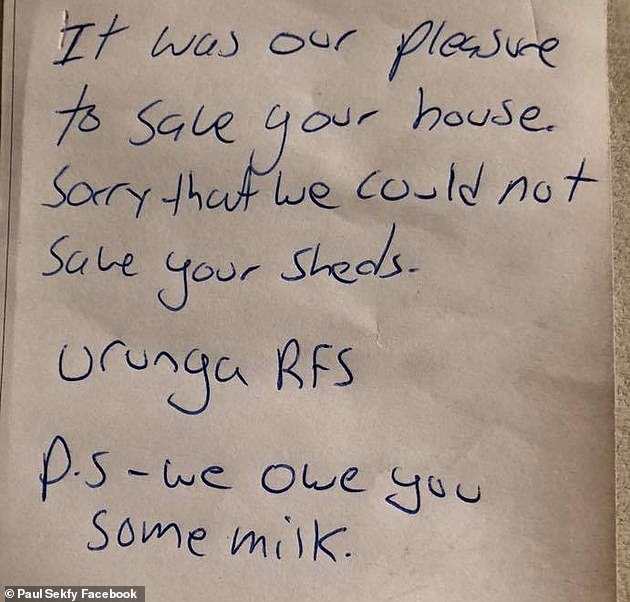 It was our pleasure
to save your house.
Sorry that we could not
save your sheds.
Urunga RFS
P.S - we owe you
some milk.
© Paul Sekfy Facebook